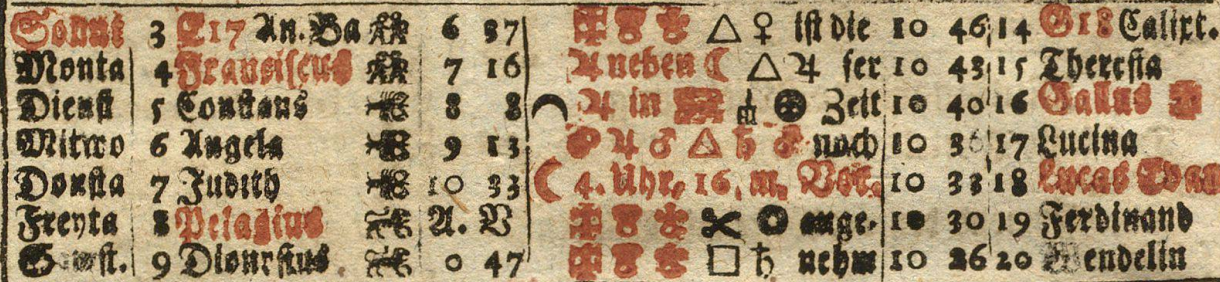 Sonnt 3 E17 An. Ba 6 37 △ ♀ ist die 10 46 14 G18 Calixt.
Monta 4 Franciscus 7 16 ♃ neben ☾ △ ♃ fer 10 43 15 Theresia
Dienst 5 Constans 8 8 ♃ in Zeit 10 40 16 Gallus
Mitwo 6 Angela 9 13 ♃ ♂ △ ♄ noch 10 36 17 Lucina
Donsta 7 Judith 10 33 ☾ 4. Uhr, 16. m. Vor. 10 33 18 Lucas Evan
Freyta 8 Pelagius A. V ange- 10 30 19 Ferdinand
9 Dionysius 0 47 □ ♄ nehm 10 26 20 Wendelin